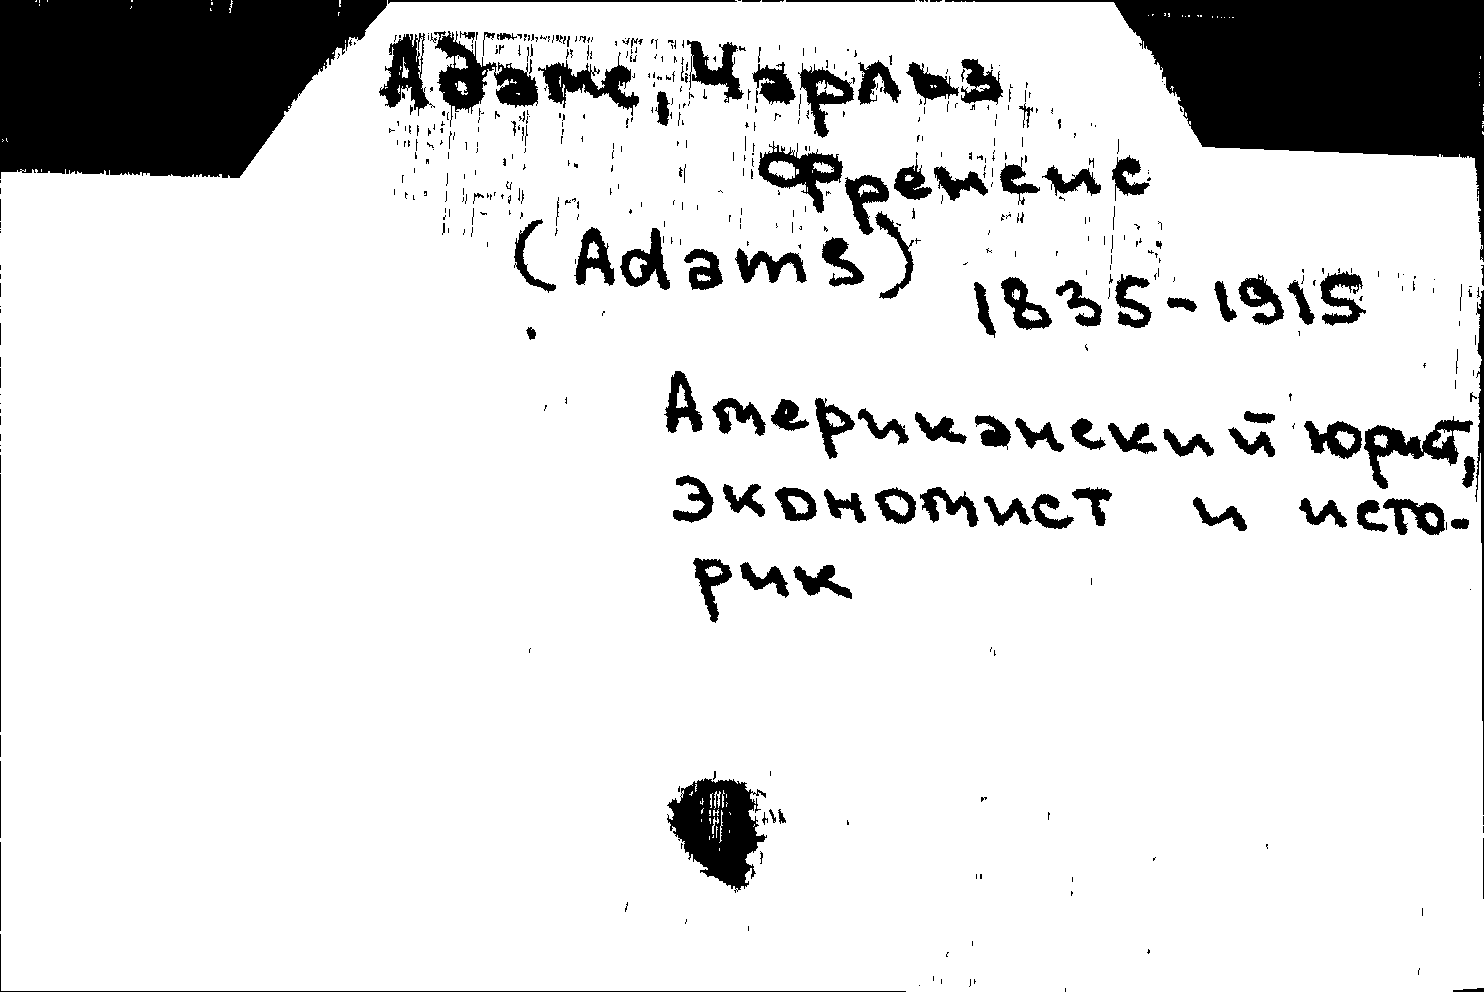 Адамс, Чарльз
Френсис
(Adams)
1835-1915
Американский юрист,
экономист и исто-
рик